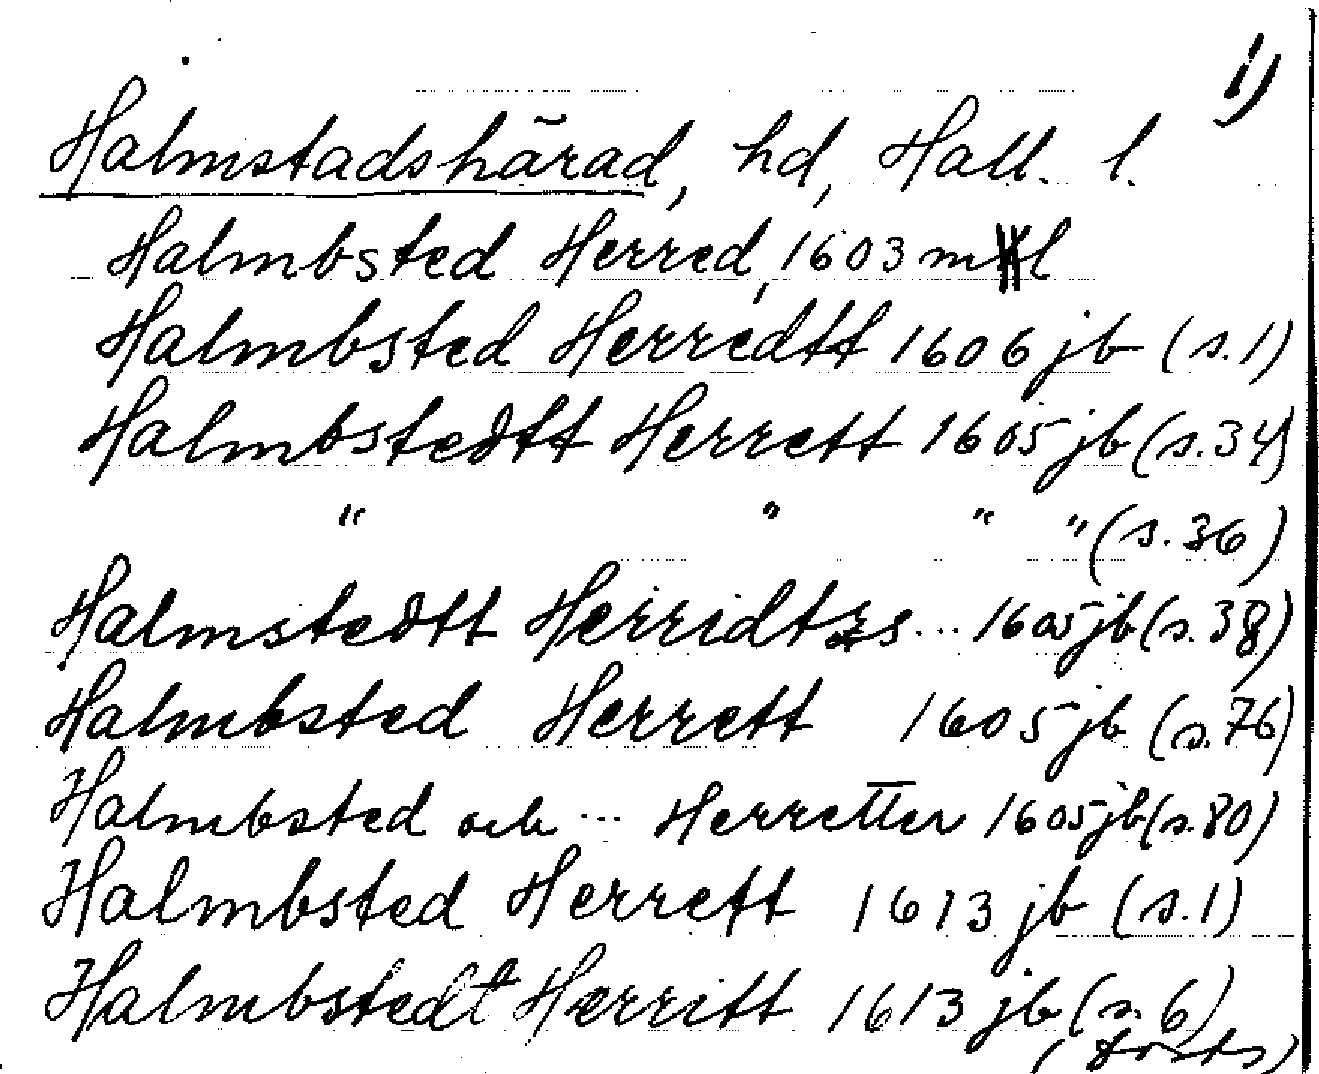 1)
Halmstads härad, hd, Hall. l.
Halmbsted Herred, 1603 ml
Halmbsted Herredtt 1606 jb (s.1)
Halmbstedtt Herrett 1605 jb (s.34)
" " " " (s.36)
Halmstedtt Herridtzs ... 1605 jb (s.38)
Halmbsted Herrett 1605 jb (s.76)
Halmbsted och ... Herretter 1605 jb (s.80)
Halmbsted Herrett 1613 jb (s.1)
Halmbstedt Herritt 1613 jb (s.6)
(forts)